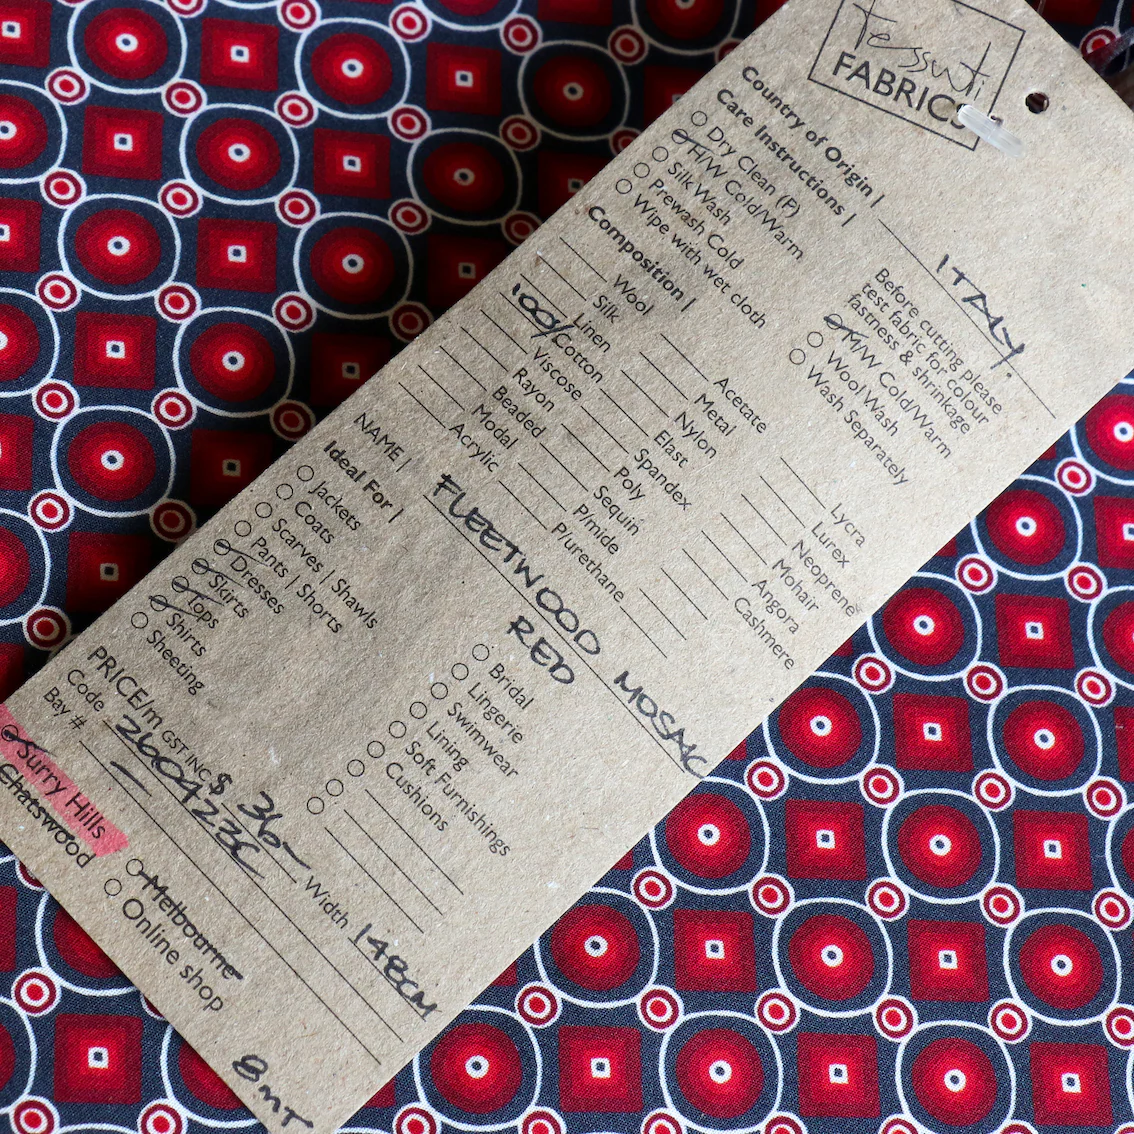 Tessuti
FABRICS
Country of Origin | ITALY.
Care Instructions |
Dry Clean (P)
H/W Cold/Warm
Silk Wash
Prewash Cold
Wipe with wet cloth
Before cutting please
test fabric for colour
fastness & shrinkage
M/W Cold/Warm
Wool Wash
Wash Separately
Composition |
Wool
Silk
Linen
100% Cotton
Viscose
Rayon
Beaded
Modal
Acrylic
Acetate
Metal
Nylon
Elast
Spandex
Poly
Sequin
P/mide
P/urethane
Lycra
Lurex
Neoprene
Mohair
Angora
Cashmere
NAME | FLEETWOOD MOSAIC
RED
Ideal For |
Jackets
Coats
Scarves | Shawls
Pants | Shorts
Dresses
Skirts
Tops
Shirts
Sheeting
Bridal
Lingerie
Swimwear
Lining
Soft Furnishings
Cushions
PRICE/m GST INC $ 36- Width 148cm
Code 260923C
Bay #
Surry Hills
Chatswood
Melbourne
Online shop
8mT